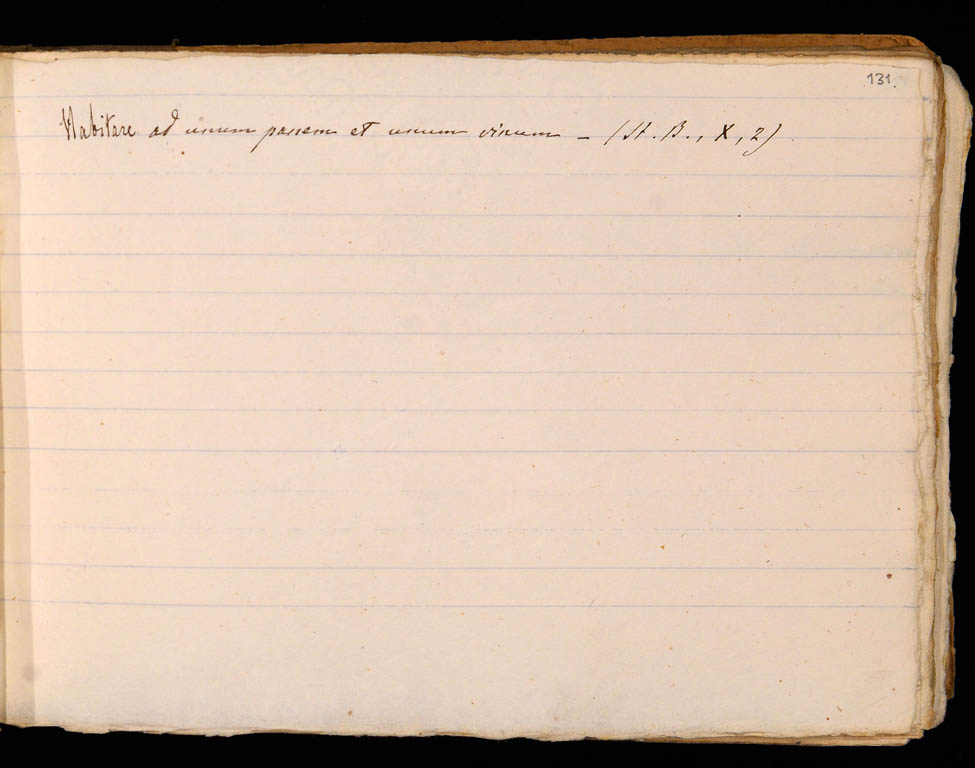 131.
Habitare ad unum panem et unum vinum – (St. B., X, 2)